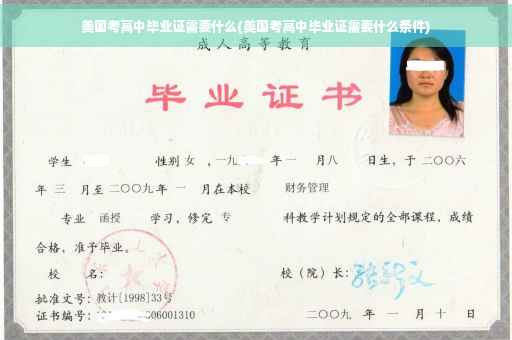 美国考高中毕业证需要什么(美国考高中毕业证需要什么条件)
成人高等教育
毕业证书
学生 性别 女 ，一九 年 一 月八 日生，于 二〇〇六
年 三 月至 二〇〇九 年 一 月在本校 财务管理
专业 函授 学习，修完 专 科教学计划规定的全部课程，成绩
合格，准予毕业。
校 名： 校（院）长：
批准文号：教计[1998]33号
证书编号： 06001310 二〇〇九 年 一 月 十 日